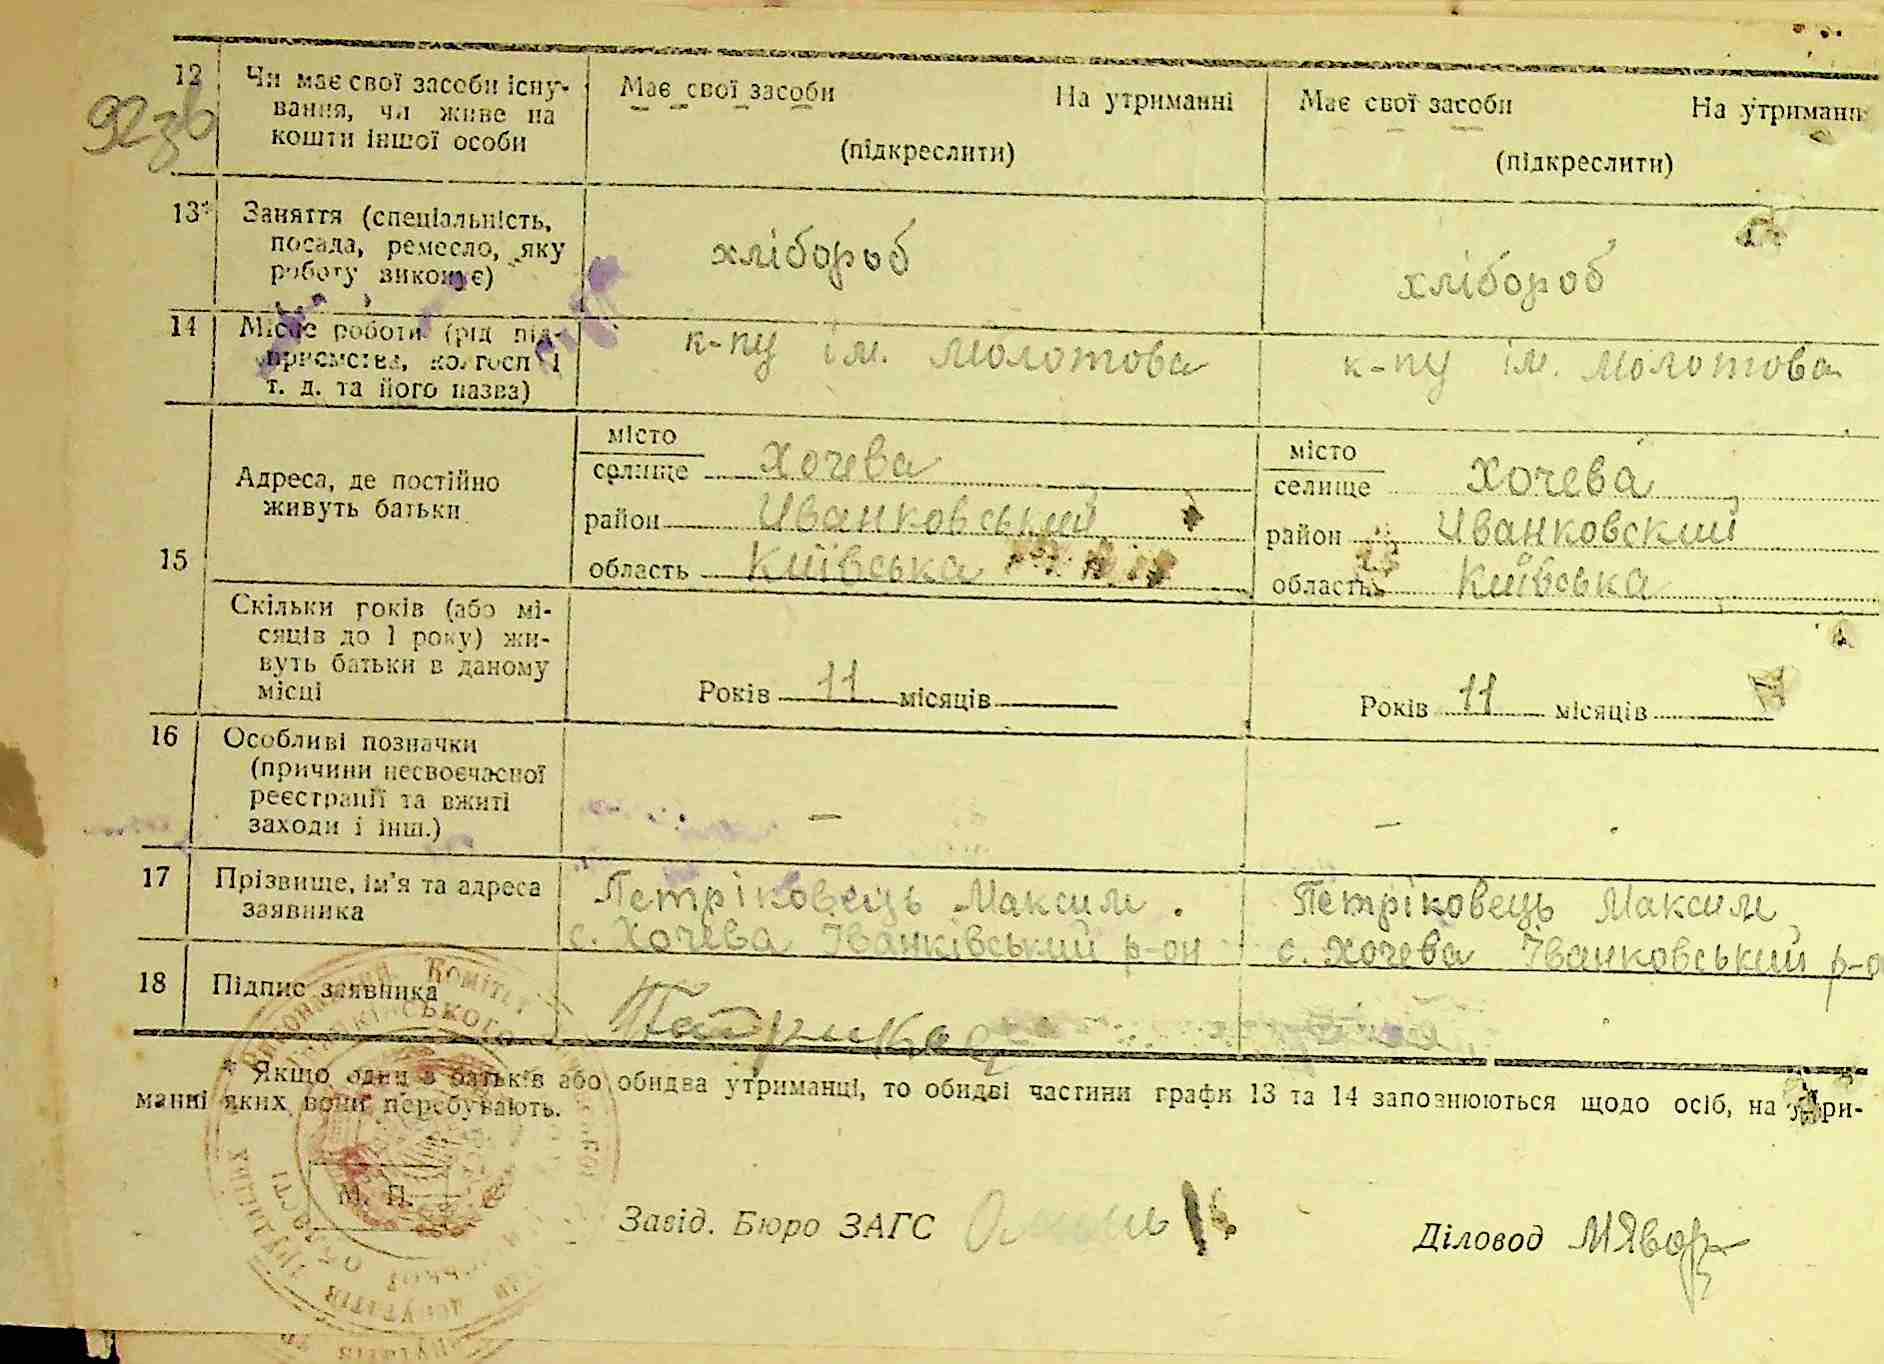 12 Чи має свої засоби існу-
вання, чи живе на
кошти іншої особи
Має свої засоби На утриманні
(підкреслити)
Має свої засоби На утриманні
(підкреслити)
92зв
13* Заняття (спеціальність,
посада, ремесло, яку
роботу виконує)
хлібороб
хлібороб
14 Місце роботи (рід під-
приємства, колгосп і
т. д. та його назва)
к-пу ім. Молотова
к-пу ім. Молотова
15
Адреса, де постійно
живуть батьки
місто
селище Хочева
район Иванковський
область Київська
місто
селище Хочева
район Иванковский
область Київська
Скільки років (або мі-
сяців до 1 року) жи-
вуть батьки в даному
місці
Років 11 місяців
Років 11 місяців
16 Особливі позначки
(причини несвоєчасної
реєстрації та вжиті
заходи і інш.)
–
–
17 Прізвище, ім'я та адреса
заявника
Петріковець Максим.
с. Хочева Іванківський р-он
Петріковець Максим
с. Хочева Іванковський р-о
18 Підпис заявника
* Якщо один з батьків або обидва утриманці, то обидві частини графи 13 та 14 заповнюються щодо осіб, на утри-
манні яких вони перебувають.
М. П.
Завід. Бюро ЗАГС
Діловод МЯвор